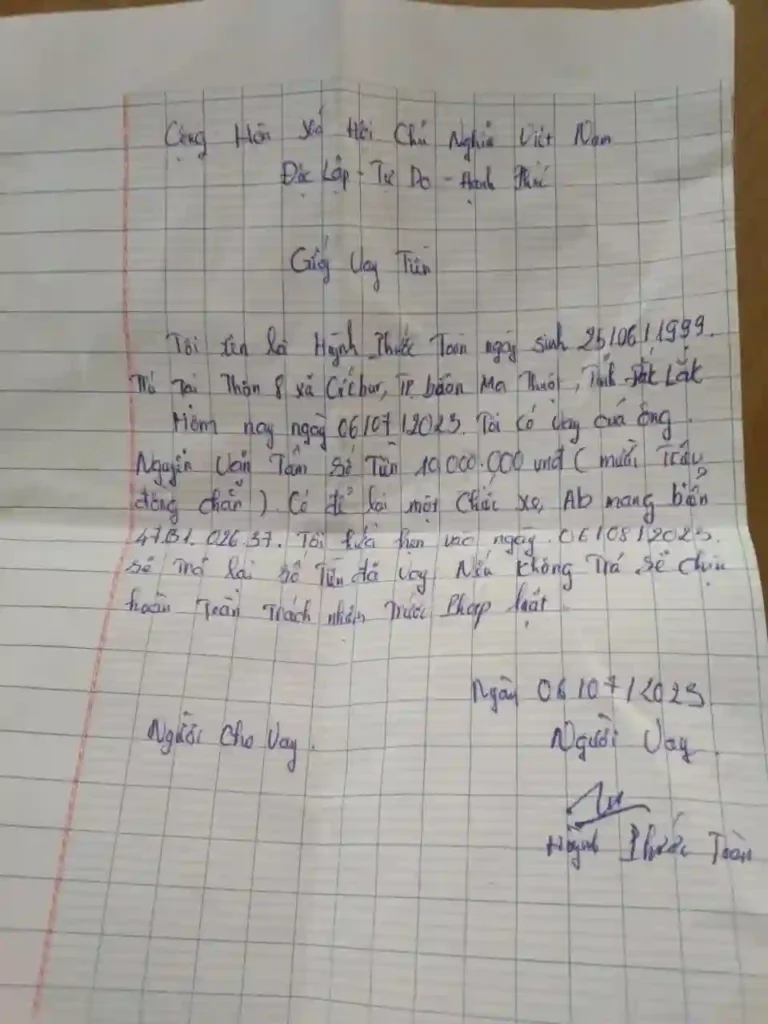 Cộng Hòa Xã Hội Chủ Nghĩa Việt Nam
Độc Lập - Tự Do - Hạnh Phúc
Giấy Vay Tiền
Tôi tên là Huỳnh Phước Toàn ngày sinh 25/06/1999.
Trú tại Thôn 8 xã Cưêbur, TP. buôn Ma Thuột, Tỉnh Đắk Lắk
Hôm nay ngày 06/07/2023. Tôi có vay của ông
Nguyễn Văn Tâm số Tiền 10.000.000 vnđ ( mười Triệu
đồng chẵn ). Có để lại một Chiếc xe, Ab mang biển
47.B1. 026.37. Tôi hẹn vào ngày 06/08/2023.
sẽ Trả lại số Tiền đã vay Nếu không Trả sẽ chịu
hoàn Toàn Trách nhiệm Trước Pháp luật.
Ngày 06/07/2023
Người Cho Vay.
Người Vay.
Huỳnh Phước Toàn